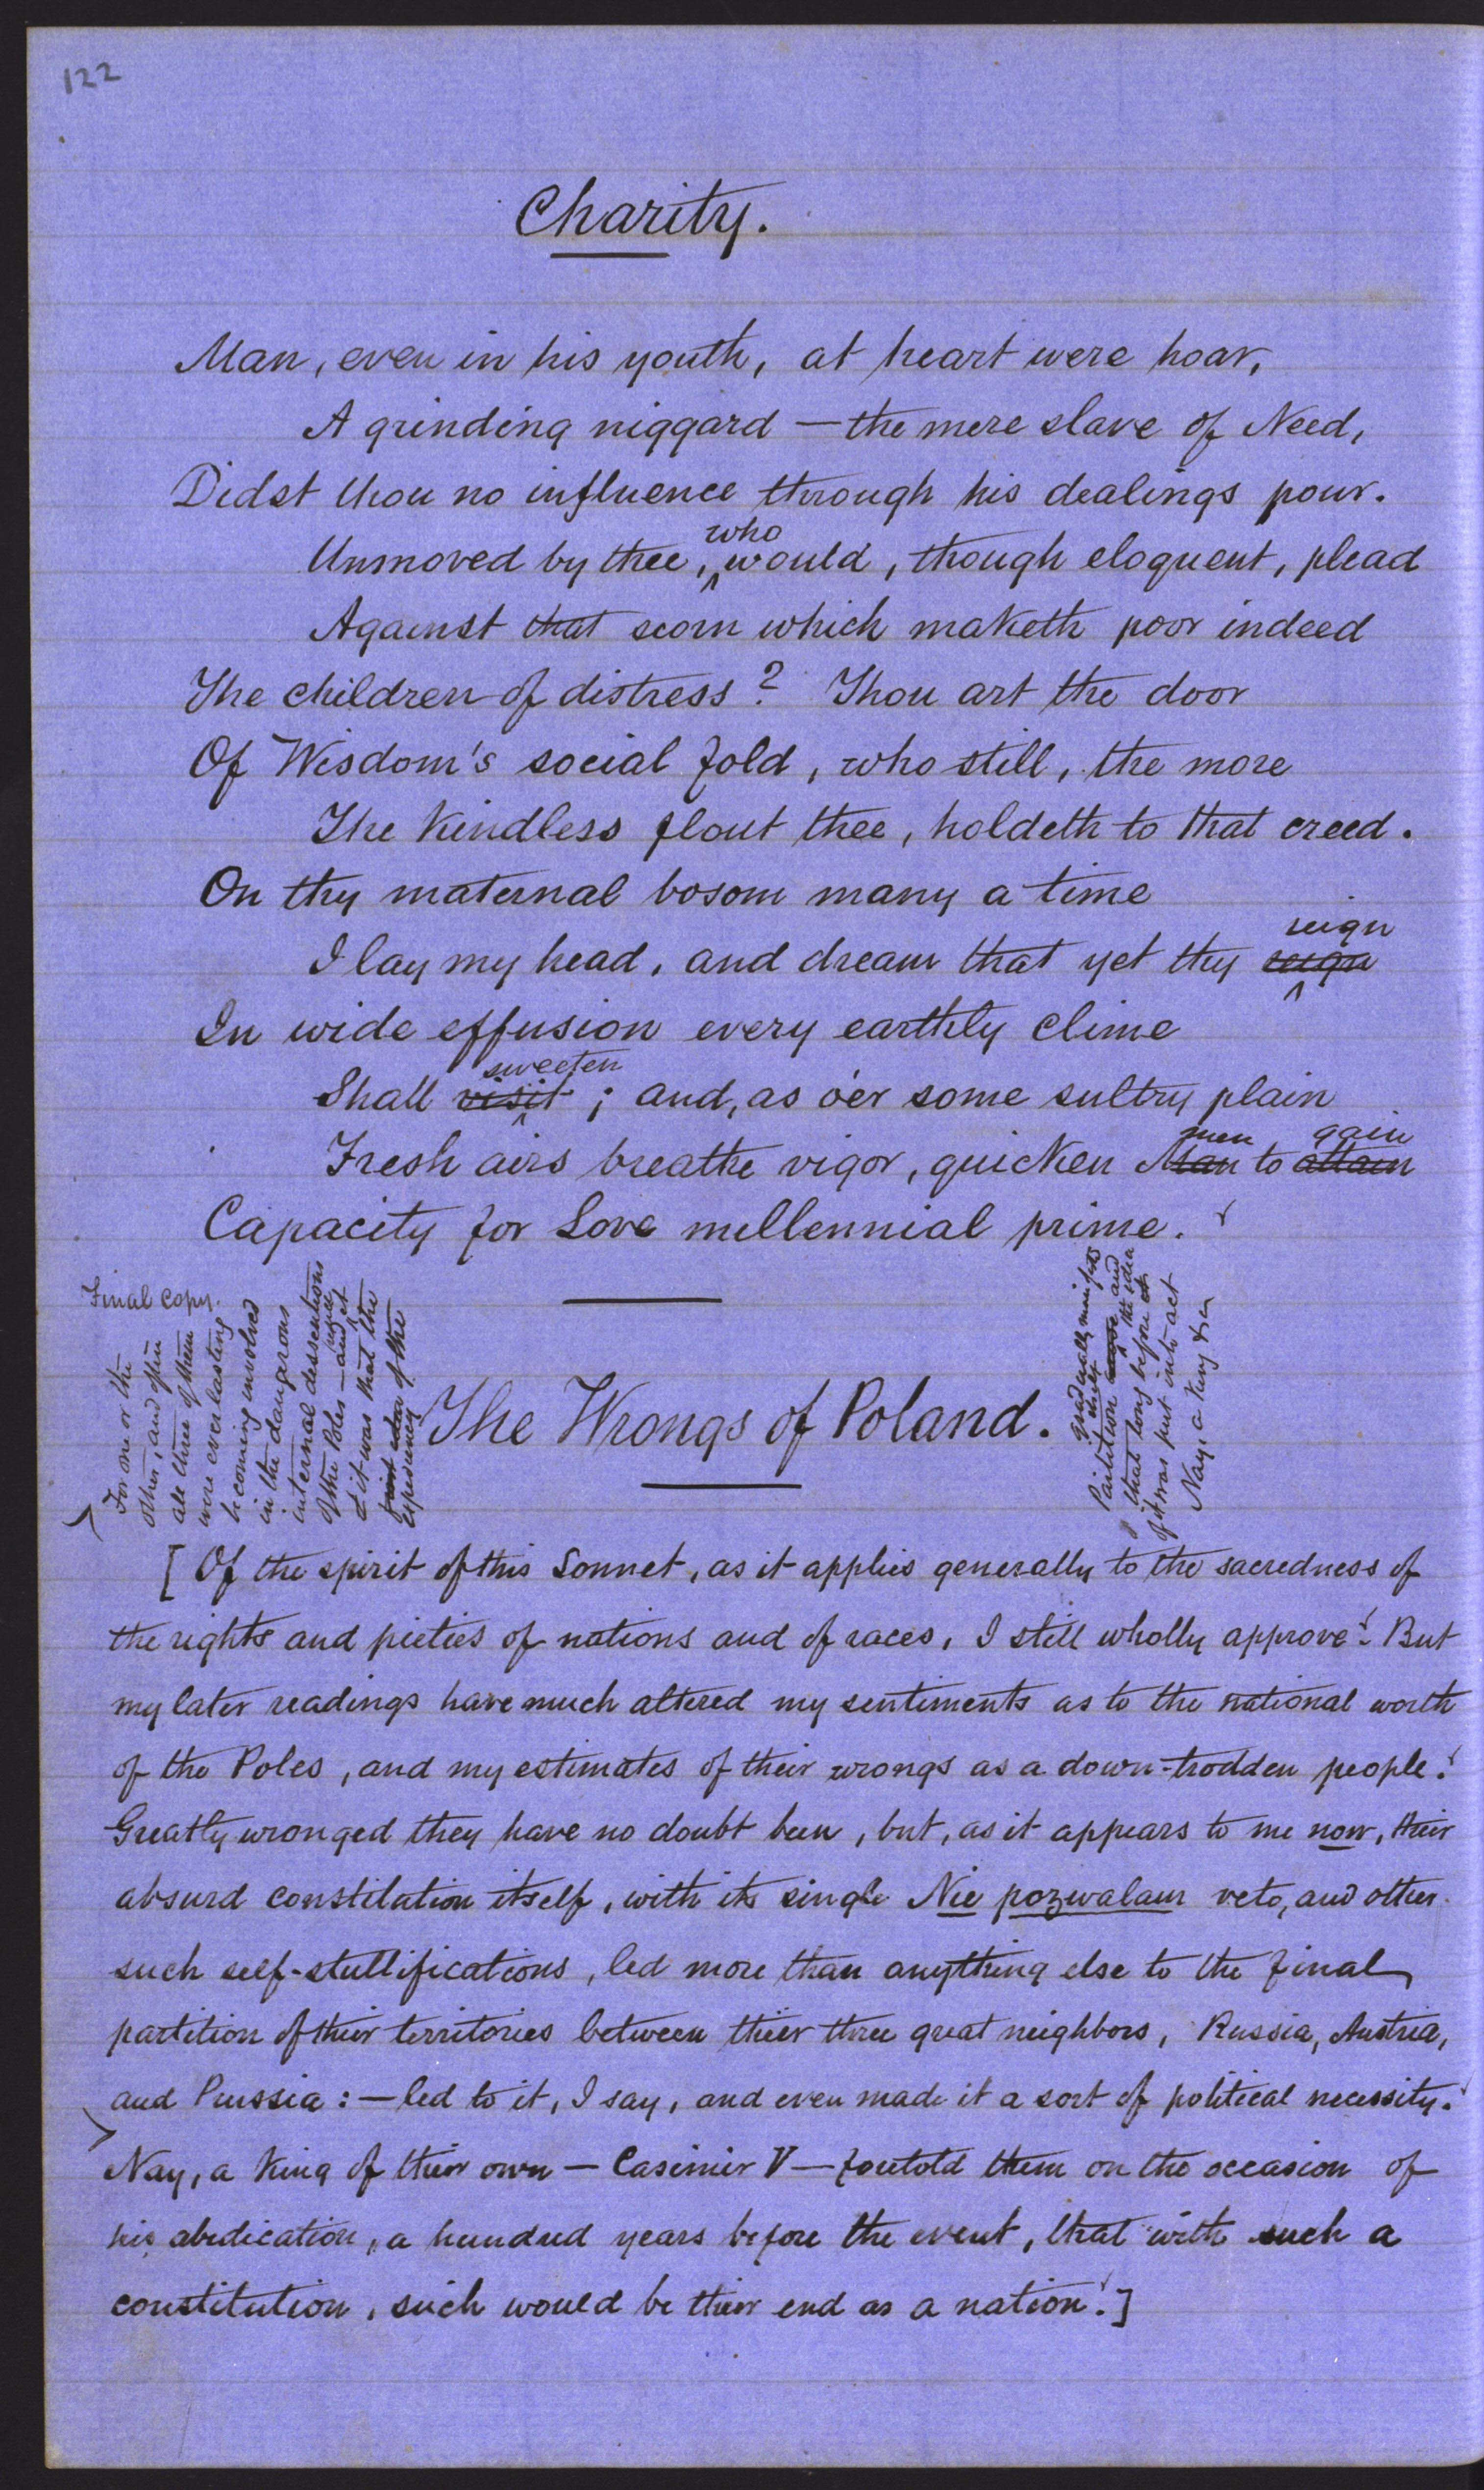 122
Charity.
Man, even in his youth, at heart were hoar,
A grinding niggard — the mere slave of Need,
Didst thou no influence through his dealings pour.
who
Unmoved by thee, ^ would, though eloquent, plead
Against that scorn which maketh poor indeed
The children of distress? Thou art the door
Of Wisdom's social fold, who still, the more
The kindless flout thee, holdeth to that creed.
On thy maternal bosom many a time
reign
I lay my head, and dream that yet thy reign
In wide effusion every earthly clime
sweeten
Shall visit; and, as o'er some sultry plain
men gain
Fresh airs breathe vigor, quicken Man to attain
Capacity for Love mellennial prime.
Final copy.
For one or the
other, and often
all three of them
were everlasting
becoming involved
in the dangerous
internal dessentions
of the Poles — and it
& it was that the
of the
expediency
The Wrongs of Poland.
gradually manifests
Partition itself and
the idea
that long before
it was put into act
Nay, a King &c
[Of the spirit of this Sonnet, as it applies generally to the sacredness of
the rights and pieties of nations and of races, I still wholly approve. But
my later readings have much altered my sentiments as to the national worth
of the Poles, and my estimates of their wrongs as a down-trodden people.
Greatly wronged they have no doubt been, but, as it appears to me now, their
absurd constitution itself, with its single Nie pozwalam veto, and other
such self-stultifications, led more than anything else to the final
partition of their territories between their three great neighbors, Russia, Austria,
and Prussia: — led to it, I say, and even made it a sort of political necessity.
Nay, a King of their own — Casimir V — foretold them on the occasion of
his abdication, a hundred years before the event, that with such a
constitution, such would be their end as a nation.]